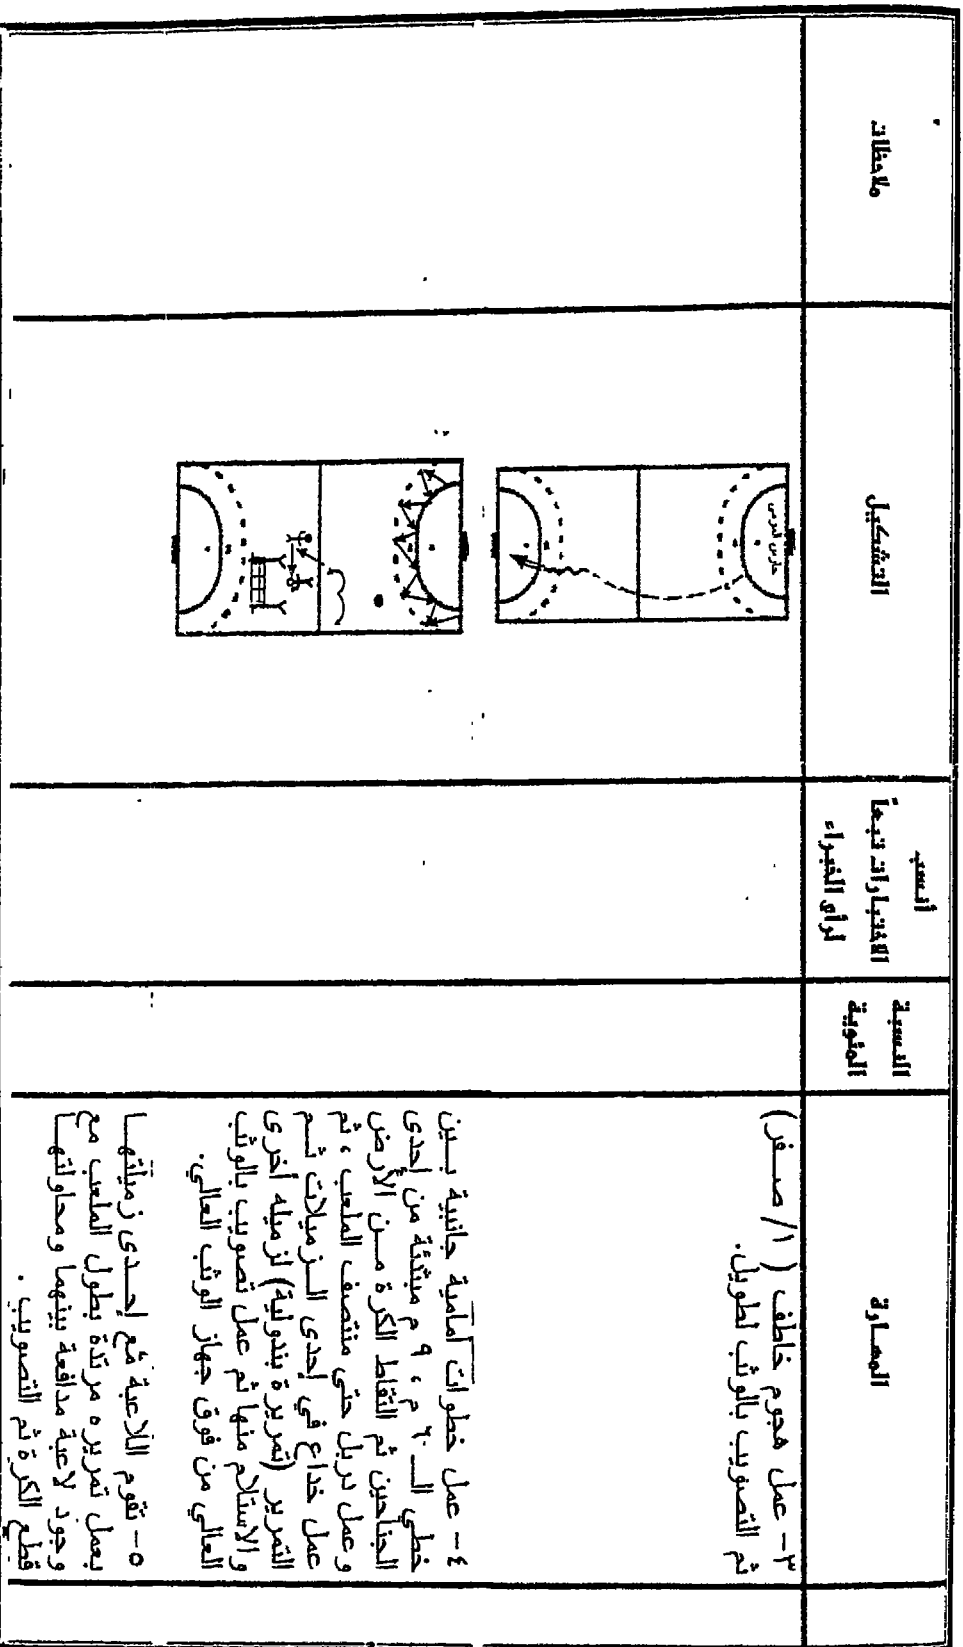 المهارة
النسبة
المئوية
أنسب
الاختبارات تبعاً
لرأي الخبراء
التشكيل
ملاحظات
٣- عمل هجوم خاطف ( ١/ صفر)
ثم التصويب بالوثب لطويل.
حارس المرمى
٤- عمل خطوات أمامية جانبية بين
خطي الـ ٦ م ، ٩ م مبتدئة من إحدى
الجناحين ثم التقاط الكرة من الأرض
وعمل دربل حتى منتصف الملعب ، ثم
عمل خداع في إحدى الزميلات ثم
التمرير (تمريرة بندولية) لزميله أخرى
والاستلام منها ثم عمل تصويب بالوثب
العالي من فوق جهاز الوثب العالي.
٥- تقوم اللاعبة مع إحدى زميلتها
بعمل تمريره مرتدة بطول الملعب مع
وجود لاعبة مدافعة بينهما ومحاولتها
قطع الكرة ثم التصويب .